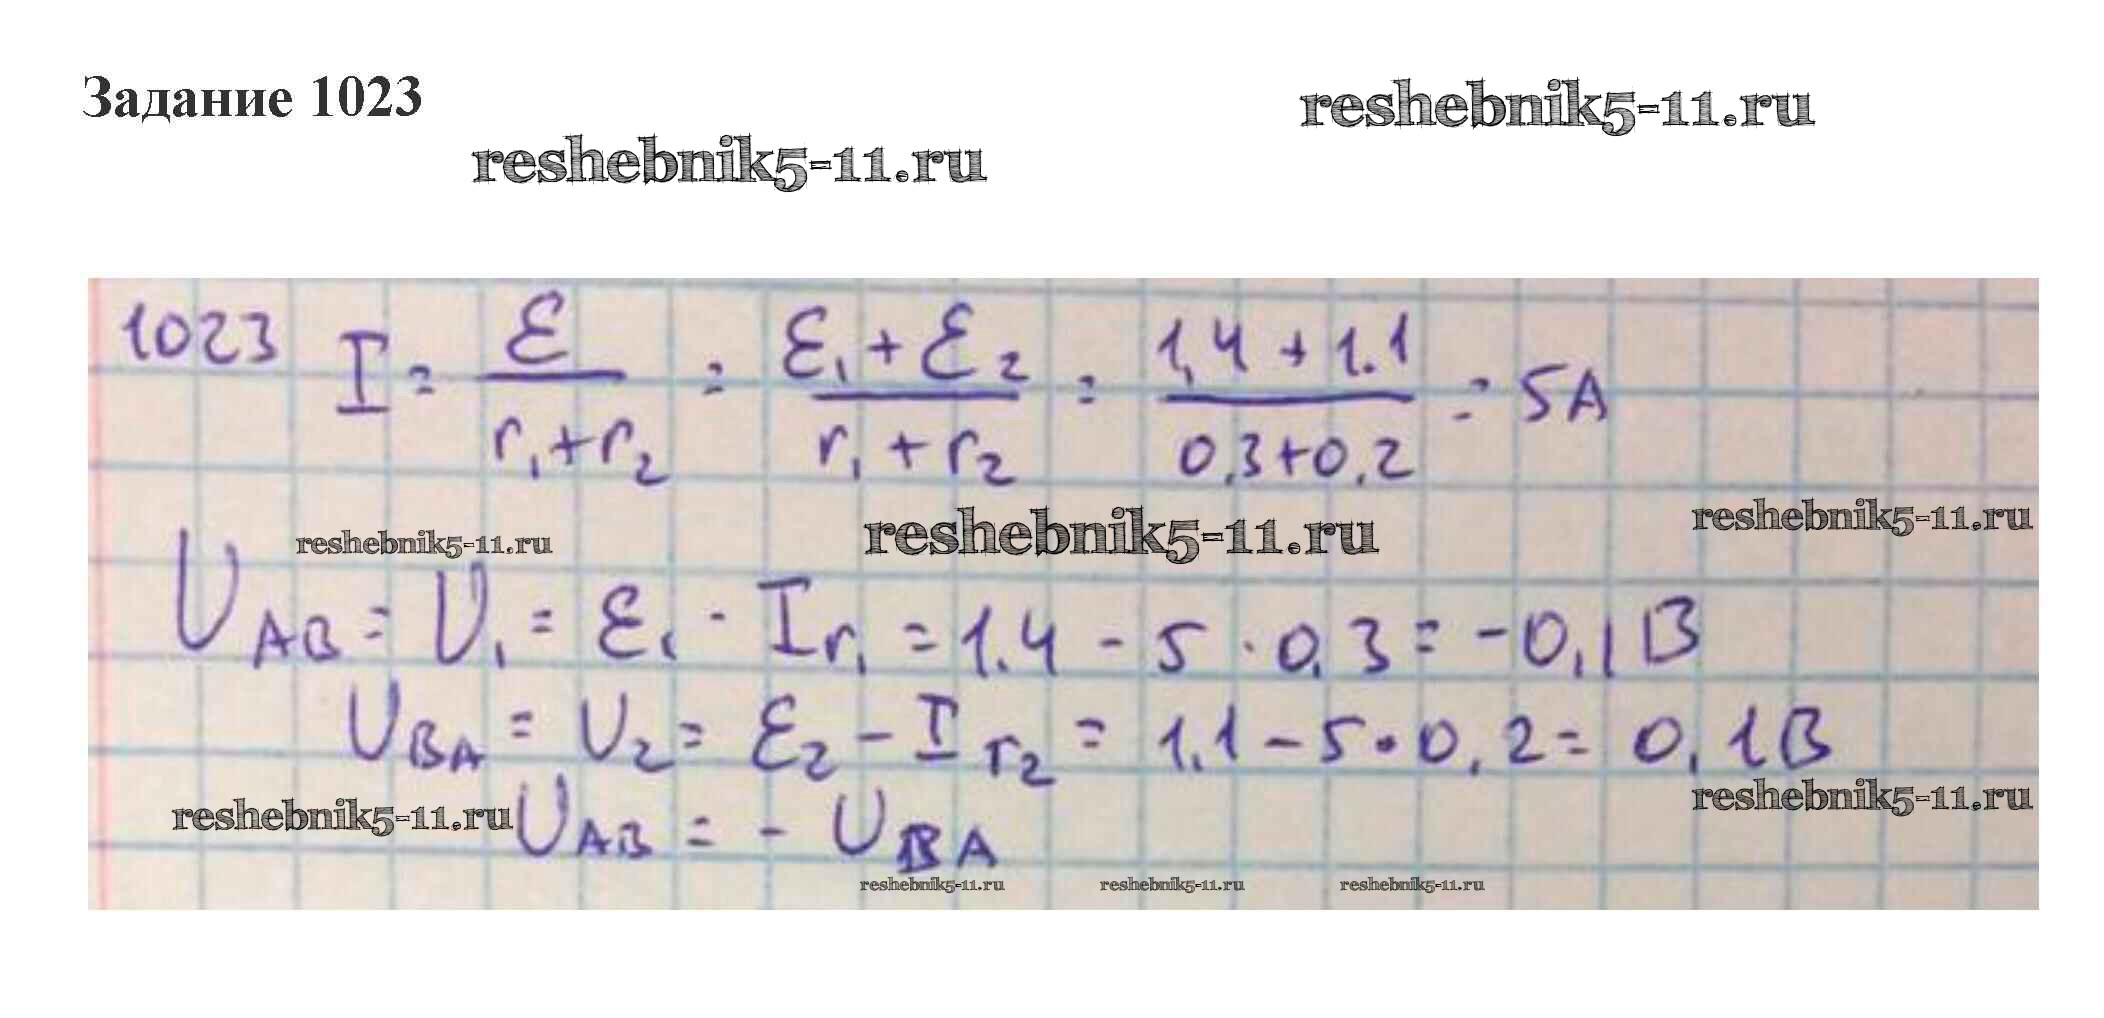 Задание 1023
reshebnik5-11.ru
reshebnik5-11.ru
1023 I = ε / (r₁+r₂) = (ε₁+ε₂) / (r₁+r₂) = (1,4+1.1) / (0,3+0,2) = 5A
reshebnik5-11.ru
reshebnik5-11.ru
reshebnik5-11.ru
U_AB = U₁ = ε₁ - Ir₁ = 1.4 - 5 · 0,3 = -0,1В
U_BA = U₂ = ε₂ - Ir₂ = 1.1 - 5 · 0,2 = 0,1В
reshebnik5-11.ru
reshebnik5-11.ru
U_AB = - U_BA
reshebnik5-11.ru
reshebnik5-11.ru
reshebnik5-11.ru